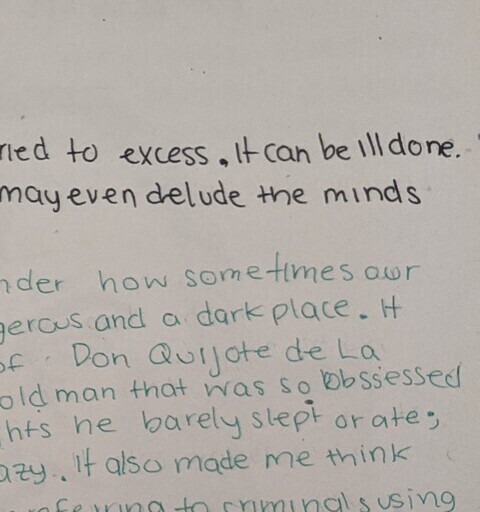 ried to excess, It can be ill done.
may even delude the minds
nder how sometimes our
gerous and a dark place. It
of Don Quijote de La
old man that was so obssessed
hts he barely slept or ate;
azy. It also made me think
to criminals using